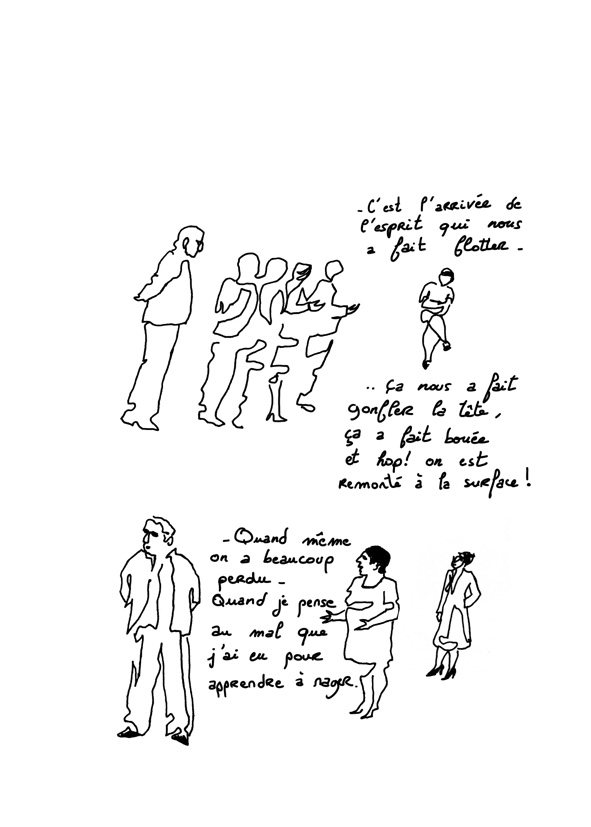 - C'est l'arrivée de
l'esprit qui nous
a fait flotter -
.. ça nous a fait
gonfler la tête,
ça a fait bouée
et hop! on est
remonté à la surface!
- Quand même
on a beaucoup
perdu -
Quand je pense
au mal que
j'ai eu pour
apprendre à nager.